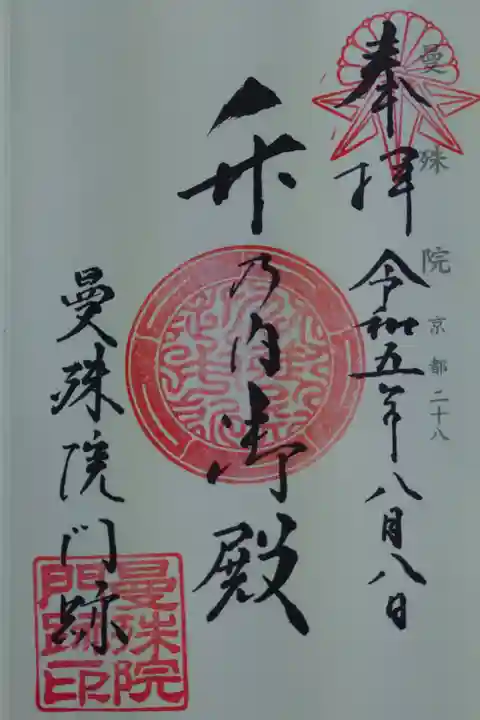 曼殊院 京都二十八
奉拝 令和五年八月八日
竹乃内御殿
曼殊院門跡
曼殊院
門跡印